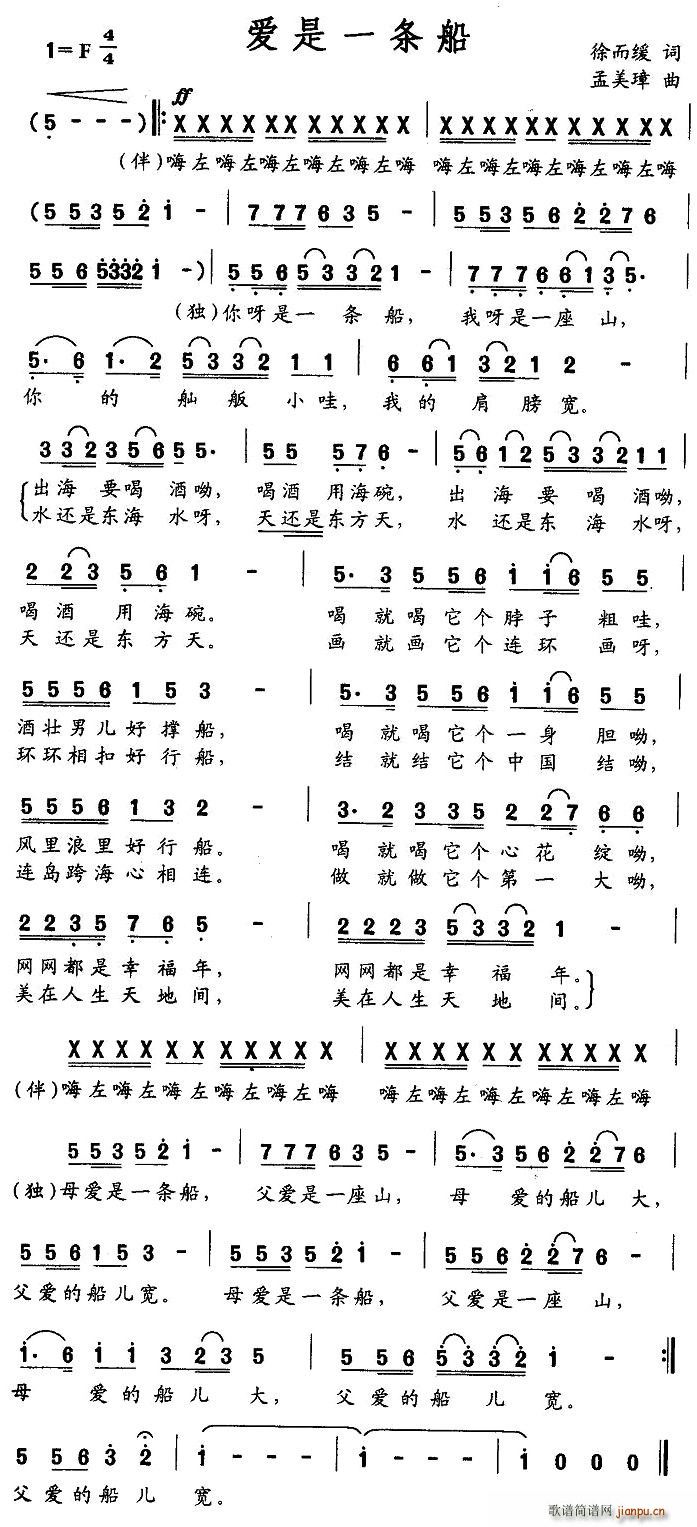 爱是一条船
1=F 4/4
徐而缓 词
孟美璋 曲
ff
(5 - - -) ‖: X XX X X XX XX X X | X XX X X XX XX X X |
(伴)嗨左嗨左嗨左嗨左嗨左嗨 嗨左嗨左嗨左嗨左嗨左嗨
(5 5 3 5 2 1 - | 7 7 7 6 3 5 - | 5 5 3 5 6 2 2 7 6 |
5 5 6 5 3 3 2 1 -) 5 5 6 5 3 3 2 1 - | 7 7 7 6 6 1 3 5· |
(独)你呀是一 条 船, 我呀是一座 山,
5· 6 1· 2 5 3 3 2 1 1 | 6 6 1 3 2 1 2 - |
你 的 舢 舨 小哇, 我的 肩 膀 宽。
3 3 2 3 5 6 5 5· | 5 5 5 7 6 - | 5 6 1 2 5 3 3 2 1 1 |
出海 要喝 酒呦, 喝酒 用海碗, 出 海 要 喝 酒呦,
水还是东海 水呀, 天还是东方天, 水 还是东 海 水呀,
2 2 3 5 6 1 - | 5· 3 5 5 6 1 1 6 5 5 |
喝 酒 用 海碗。 喝 就喝它个脖子 粗哇,
天 还是东 方天。 画 就画它个连环 画呀,
5 5 5 6 1 5 3 - | 5· 3 5 5 6 1 1 6 5 5 |
酒壮男儿好撑船, 喝 就喝它个一身 胆呦,
环环相扣好行船, 结 就结它个中国 结呦,
5 5 5 6 1 3 2 - | 3· 2 3 3 5 2 2 7 6 6 |
风里浪里好行船。 喝 就喝它个心花 绽呦,
连岛跨海心相连。 做 就做它个第一 大呦,
2 2 3 5 7 6 5 - | 2 2 2 3 5 3 3 2 1 - |
网网都是幸福年, 网网都是幸 福 年。
美在人生天地间, 美在人生天 地 间。
X XX X X XX XX X X | X XX X X XX XX X X |
(伴)嗨左嗨左嗨左嗨左嗨左嗨 嗨左嗨左嗨左嗨左嗨左嗨
5 5 3 5 2 1 - | 7 7 7 6 3 5 - | 5· 3 5 6 2 2 7 6 |
(独)母爱是一条船, 父爱是一座山, 母 爱的船儿 大,
5 5 6 1 5 3 - | 5 5 3 5 2 1 - | 5 5 5 6 2 2 7 6 - |
父爱的船儿宽。 母爱是一条船, 父爱是一座 山,
1· 6 1 1 3 2 3 5 | 5 5 5 6 5 3 3 2 1 - :‖
母 爱的船儿 大, 父爱的船 儿 宽。
5 5 5 6 3 2 | 1 - - - | 1 - - - | 1 0 0 0 ‖
父爱的船儿 宽。
歌谱简谱网
jianpu.cn